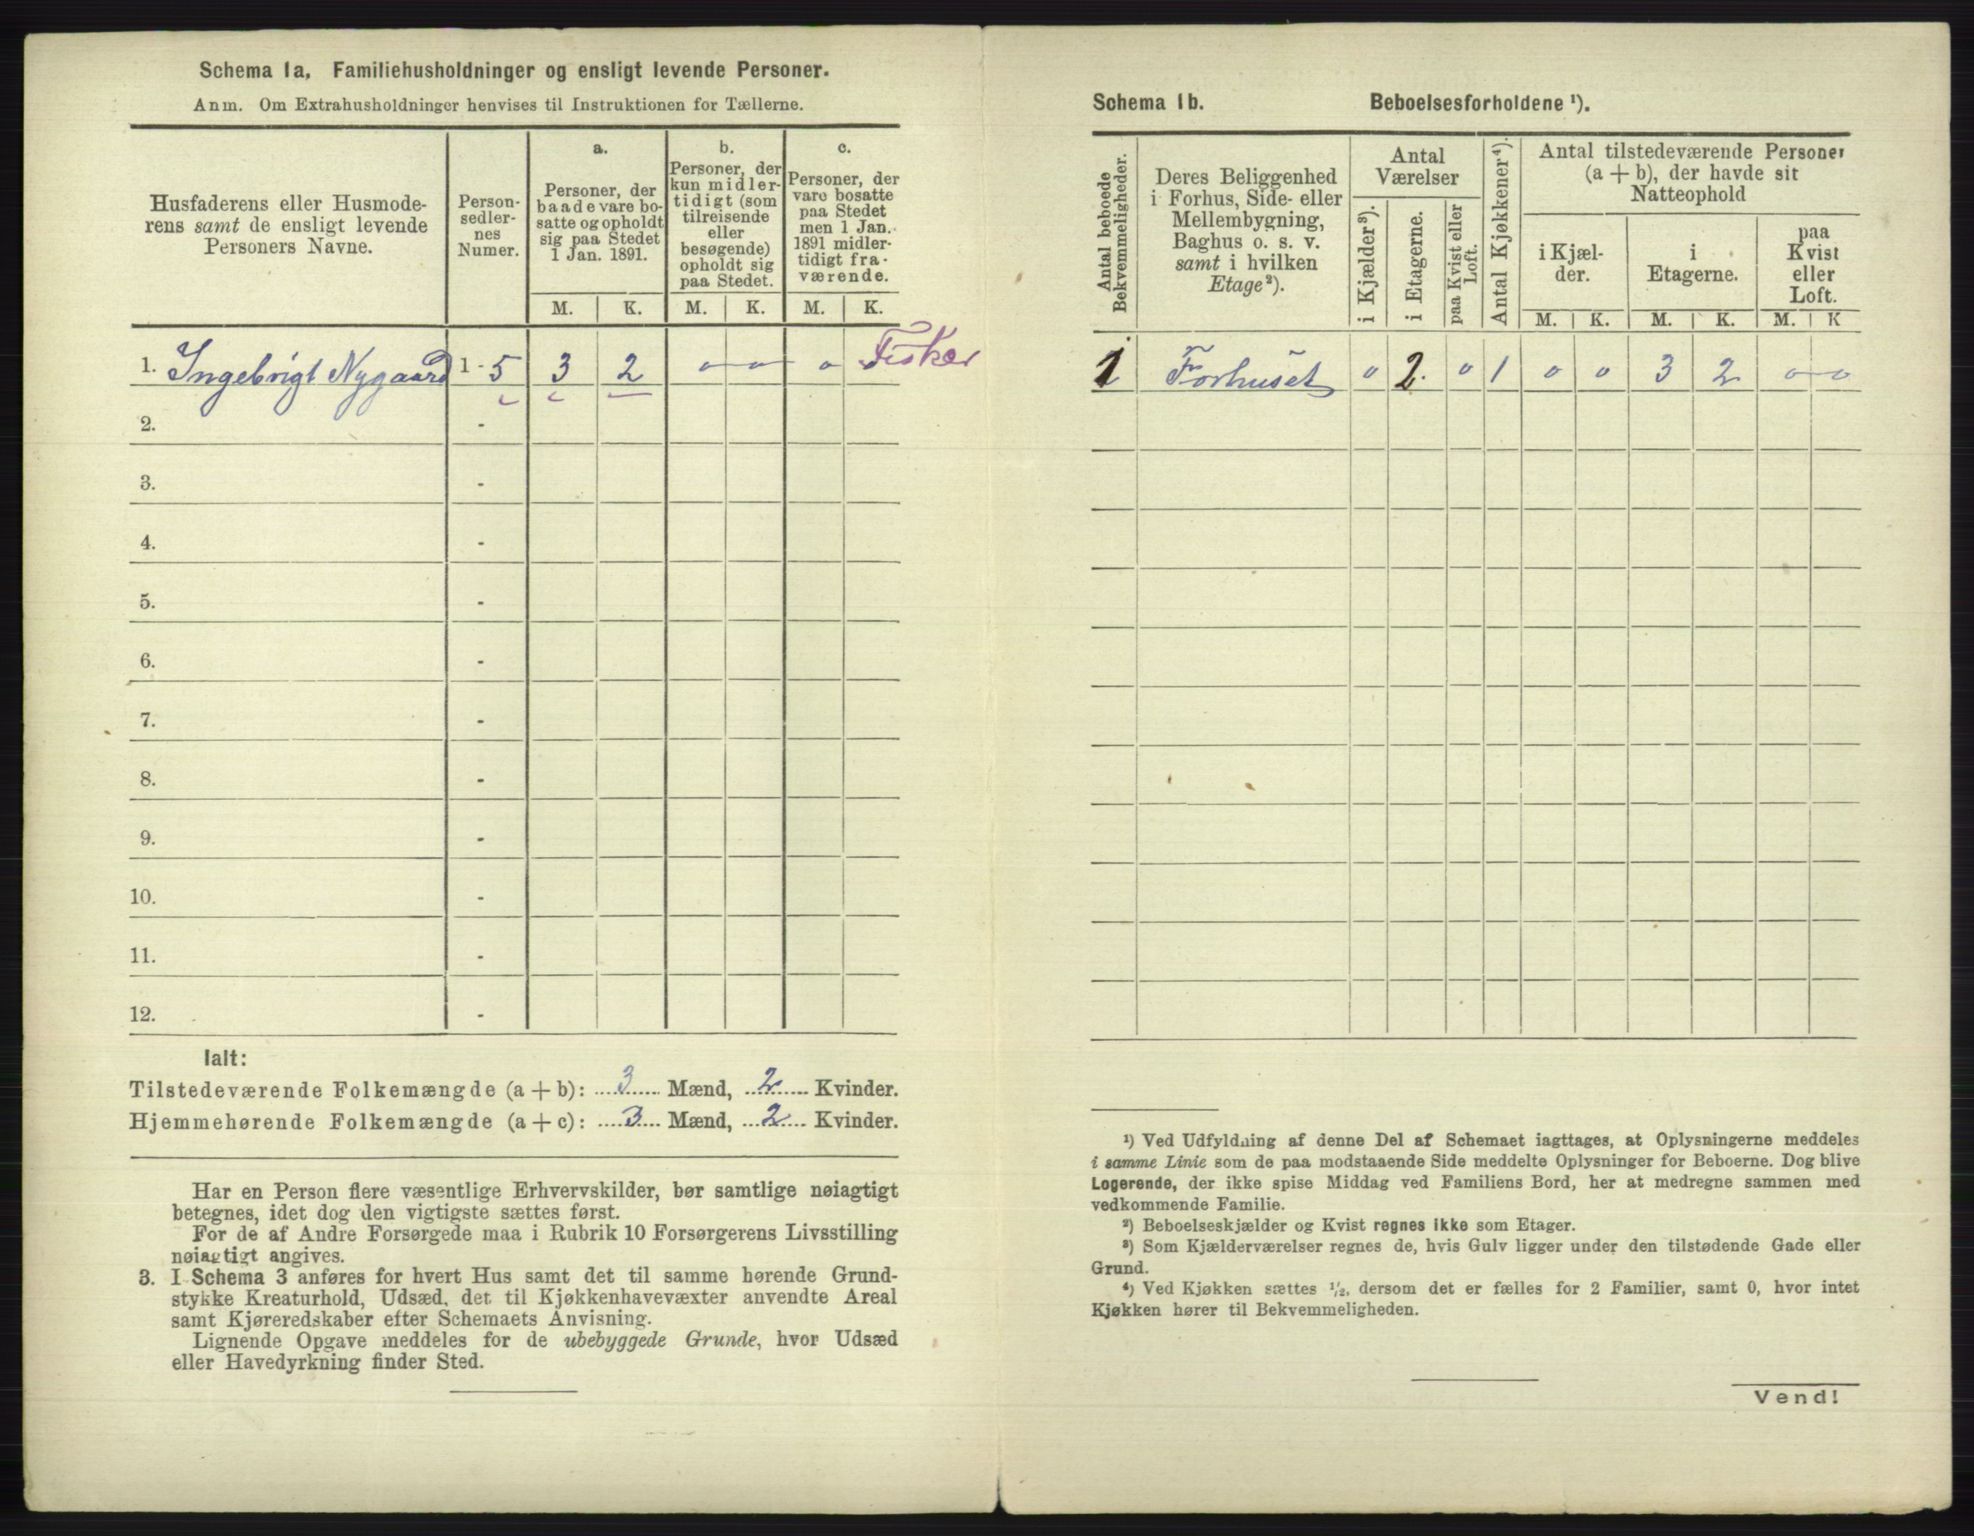 Schema 1a, Familiehusholdninger og ensligt levende Personer.
Anm. Om Extrahusholdninger henvises til Instruktionen for Tællerne.
Husfaderens eller Husmode-
rens samt de ensligt levende
Personers Navne.
Person-
sedler-
nes
Numer.
a.
Personer, der
baade vare bo-
satte og opholdt
sig paa Stedet
1 Jan. 1891.
b.
Personer, der
kun midler-
tidigt (som
tilreisende
eller
besøgende)
opholdt sig
paa Stedet.
c.
Personer, der
vare bosatte
paa Stedet
men 1 Jan.
1891 midler-
tidigt fra-
værende.
M. K. M. K. M. K.
1. Ingebrigt Nygaard 1-5 3 2 0 0 0 Fisker
2. -
3. -
4. -
5. -
6. -
7. -
8. -
9. -
10. -
11. -
12. -
Ialt:
Tilstedeværende Folkemængde (a + b): 3 Mænd, 2 Kvinder.
Hjemmehørende Folkemængde (a + c): 3 Mænd, 2 Kvinder.
Har en Person flere væsentlige Erhvervskilder, bør samtlige nøiagtigt
betegnes, idet dog den vigtigste sættes først.
For de af Andre Forsørgede maa i Rubrik 10 Forsørgerens Livsstilling
nøiagtigt angives.
3. I Schema 3 anføres for hvert Hus samt det til samme hørende Grund-
stykke Kreaturhold, Udsæd, det til Kjøkkenhavevæxter anvendte Areal
samt Kjøreredskaber efter Schemaets Anvisning.
Lignende Opgave meddeles for de ubebyggede Grunde, hvor Udsæd
eller Havedyrkning finder Sted.
Schema 1b. Beboelsesforholdene ¹).
Antal beboede
Bekvemmeligheder.
Deres Beliggenhed
i Forhus, Side- eller
Mellembygning,
Baghus o. s. v.
samt i hvilken
Etage²).
Antal
Værelser
i Kjælder³).
i Etagerne.
paa Kvist eller
Loft.
Antal Kjøkkener⁴).
Antal tilstedeværende Personer
(a + b), der havde sit
Natteophold
i Kjæl-
der.
i
Etagerne.
paa
Kvist
eller
Loft.
M. K. M. K. M. K
1 Forhuset 0 2. 0 1 0 0 3 2 0 0
¹) Ved Udfyldning af denne Del af Schemaet iagttages, at Oplysningerne meddeles
i samme Linie som de paa modstaaende Side meddelte Oplysninger for Beboerne. Dog blive
Logerende, der ikke spise Middag ved Familiens Bord, her at medregne sammen med
vedkommende Familie.
²) Beboelseskjælder og Kvist regnes ikke som Etager.
³) Som Kjælderværelser regnes de, hvis Gulv ligger under den tilstødende Gade eller
Grund.
⁴) Ved Kjøkken sættes ½, dersom det er fælles for 2 Familier, samt 0, hvor intet
Kjøkken hører til Bekvemmeligheden.
Vend!